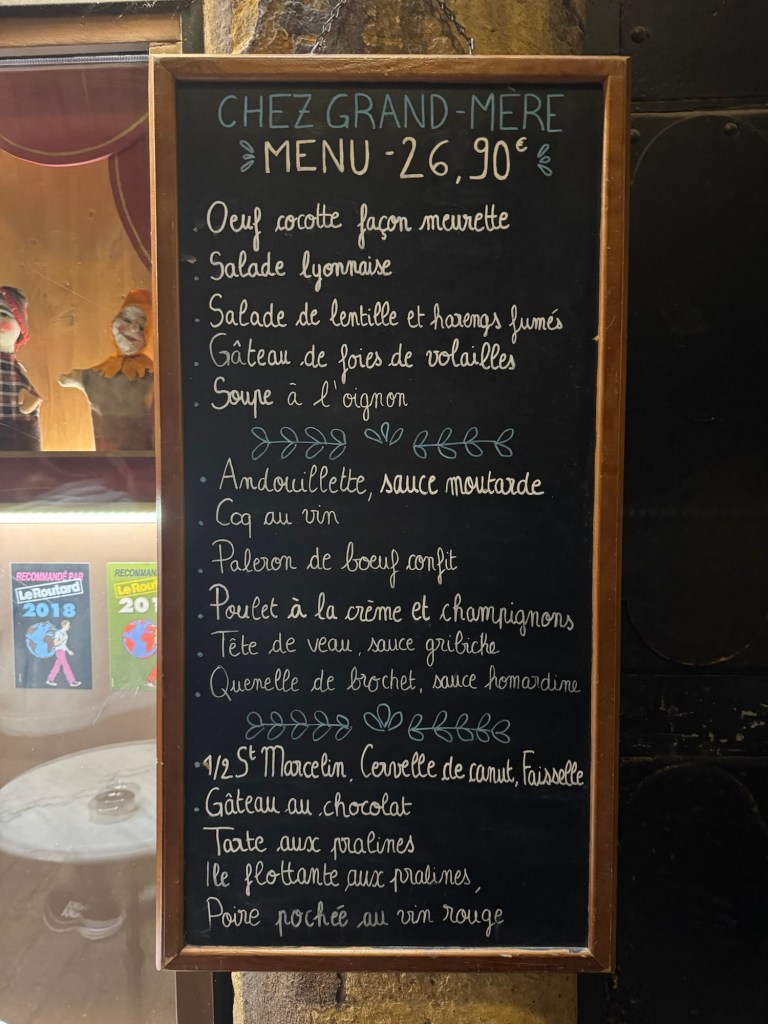 CHEZ GRAND-MÈRE
MENU - 26,90€
Oeuf cocotte façon meurette
Salade lyonnaise
Salade de lentille et harengs fumés
Gâteau de foies de volailles
Soupe à l'oignon
Andouillette, sauce moutarde
Coq au vin
Paleron de boeuf confit
Poulet à la crème et champignons
Tête de veau, sauce gribiche
Quenelle de brochet, sauce homardine
1/2 St Marcelin, Cervelle de canut, Faisselle
Gâteau au chocolat
Tarte aux pralines
Ile flottante aux pralines,
Poire pochée au vin rouge
RECOMMANDÉ PAR
Le Routard
2018
RECOMMAN
Le Rout
201